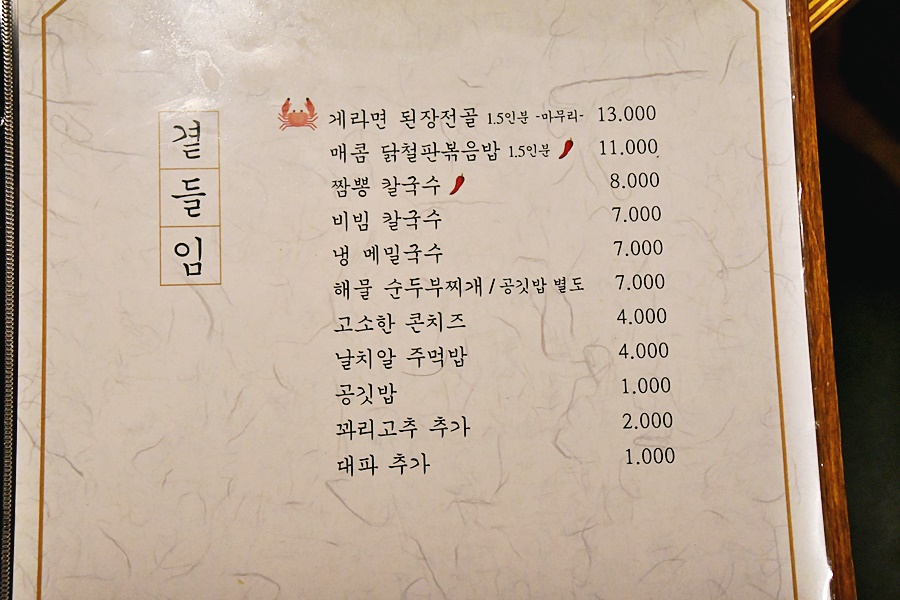 곁들임
게라면 된장전골 1.5인분 -마무리- 13.000
매콤 닭철판볶음밥 1.5인분 11.000
짬뽕 칼국수 8.000
비빔 칼국수 7.000
냉 메밀국수 7.000
해물 순두부찌개 / 공깃밥 별도 7.000
고소한 콘치즈 4.000
날치알 주먹밥 4.000
공깃밥 1.000
꽈리고추 추가 2.000
대파 추가 1.000